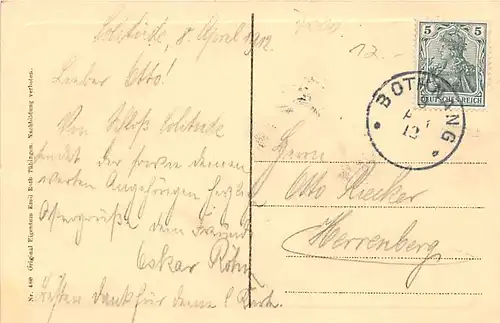 Solitüde, 8. April 1912
Lieber Otto!
Von Schloß Solitude
sendet Dir sowie Deinen
werten Angehörigen herzl.
Ostergrüße Dein Freund
Oskar
Besten Dank für Deine l. Karte.
Nr. 480 Original Eigentum Emil Roth Tübingen. Nachbildung verboten.
12.-
5 5
DEUTSCHES REICH
BOTNANG
12
Herrn
Otto
Herrenberg